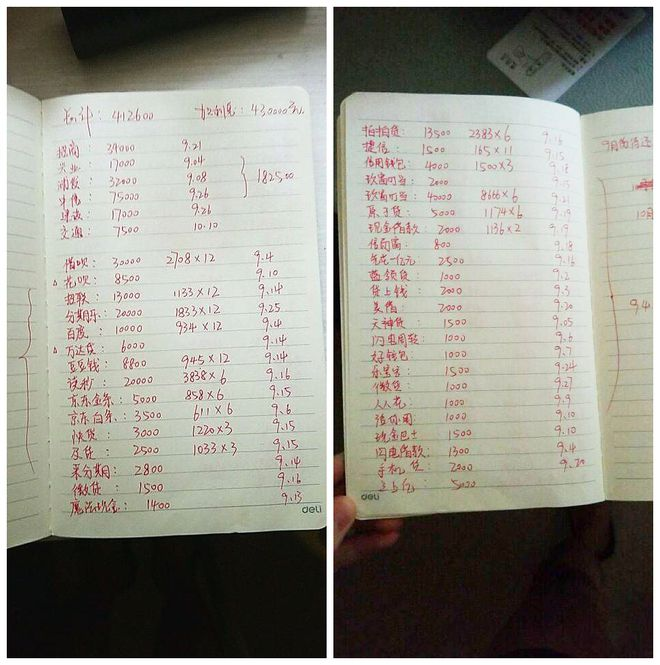 412600 430000
招商: 39000 9.21
兴业: 17000 9.04
浦发: 32000 9.08
75000 9.26
建设: 17000 9.26
交通: 7500 10.10
182500
借呗: 30000 2708×12 9.4
花呗: 8500 9.10
13000 1133×12 9.14
分期乐: 20000 1833×12 9.25
百度: 10000 934×12 9.4
万达贷: 6000 9.14
豆豆钱: 8800 945×12 9.14
读秒: 20000 3838×6 9.16
京东金条: 5000 858×6 9.15
京东白条: 3500 611×6 9.6
快贷: 3000 1220×3 9.15
及贷: 2500 1033×3 9.15
来分期: 2800 9.14
微贷: 1500 9.16
魔法现金: 1400 9.13
deli
拍拍贷: 13500 2383×6 9.16
捷信: 1500 165×11 9.15
信用钱包: 4000 1500×3 9.18
玖富叮当: 2000 9.15
玖富叮当: 40000 8666×6 9.21
原子贷: 5000 1174×6 9.19
现金借款: 2000 1136×2 9.19
信而富: 800 9.18
2500 9.16
蓝领贷: 1000 9.2
贷上钱: 2000 9.3
2000 9.20
天神贷: 1500 9.05
闪电周转: 1000 9.6
好钱包: 1000 9.7
1500 9.24
微贷: 1000 9.27
人人花: 1000 9.9
1000 9.10
现金巴士: 1500 9.10
闪电借款: 1300 9.4
手机贷: 2000 9.20
5000
deli
9月
10月
94